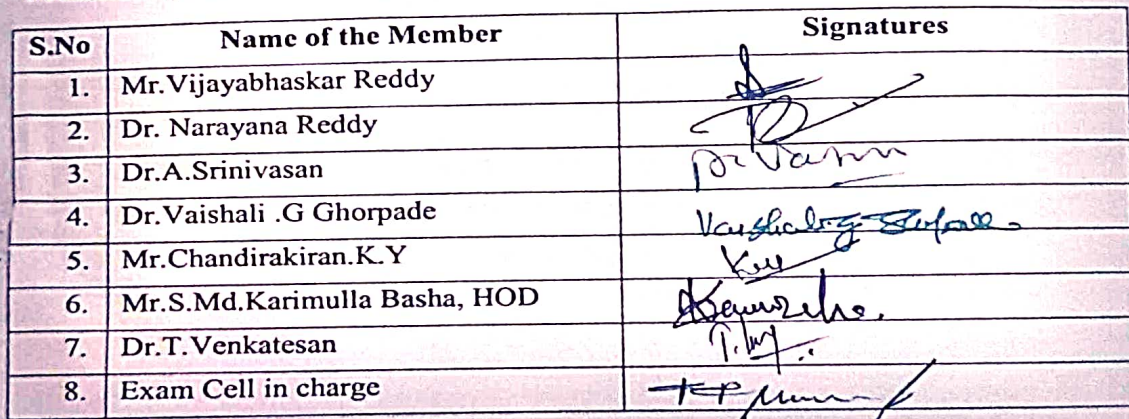 S.No Name of the Member Signatures
1. Mr.Vijayabhaskar Reddy
2. Dr. Narayana Reddy
3. Dr.A.Srinivasan
4. Dr.Vaishali .G Ghorpade
5. Mr.Chandirakiran.K.Y
6. Mr.S.Md.Karimulla Basha, HOD
7. Dr.T.Venkatesan
8. Exam Cell in charge